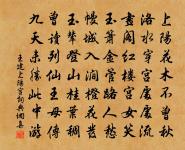 上陽花木不曾秋
洛水穿宮處處流
畫閣紅樓宮女笑
玉簫金管路人愁
幔城入澗橙花發
玉輦登山桂葉稠
曾讀列仙王母傳
九天未勝此中遊
王建上陽宮